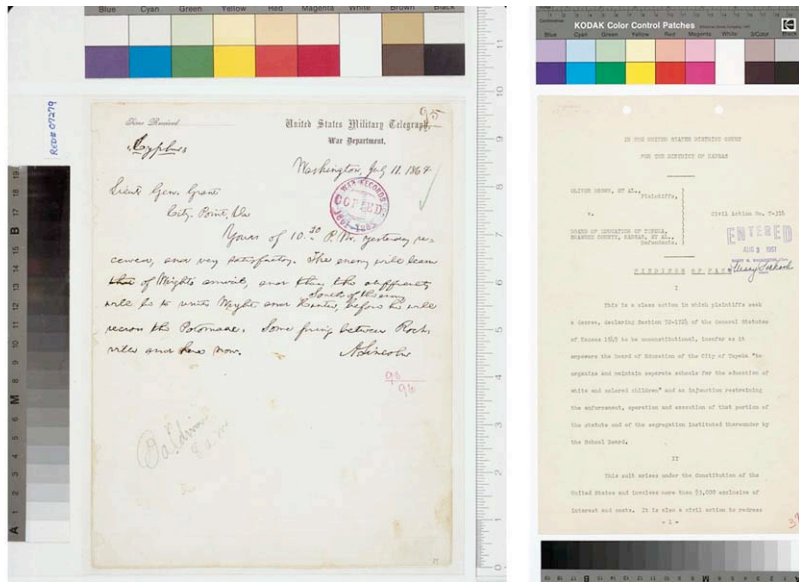 Blue Cyan Green Yellow Red Magenta White Brown Black
RED# 07279
95
Time Received
United States Military Telegraph,
War Department.
Cypher
Washington, July 11. 1864
Lieut Gen. Grant
City Point, Va
Yours of 10.30 P.M. yesterday re-
ceived, and very satisfactory. The enemy will learn
of Wright's arrival, and then the difficulty
will be to unite Wright and Hunter,
South of the enemy
before he will
recross the Potomac. Some firing between Rock-
ville and here now.
A. Lincoln
WAR RECORDS
COPIED
Baldwin
KODAK Color Control Patches
Blue Cyan Green Yellow Red Magenta White 3/Color Black
IN THE UNITED STATES DISTRICT COURT
FOR THE DISTRICT OF KANSAS
OLIVER BROWN, ET AL.,
Plaintiffs,
v.
Civil Action No. T-316
BOARD OF EDUCATION OF TOPEKA,
SHAWNEE COUNTY, KANSAS, ET AL.,
Defendants.
ENTERED
AUG 3 1951
FINDINGS OF FACT
I
This is a class action in which plaintiffs seek
a decree, declaring Section 72-1724 of the General Statutes
of Kansas 1949 to be unconstitutional, insofar as it
empowers the Board of Education of the City of Topeka "to
organize and maintain separate schools for the education of
white and colored children" and an injunction restraining
the enforcement, operation and execution of that portion of
the statute and of the segregation instituted thereunder by
the School Board.
II
This suit arises under the Constitution of the
United States and involves more than $3,000 exclusive of
interest and costs. It is also a civil action to redress
- 1 -